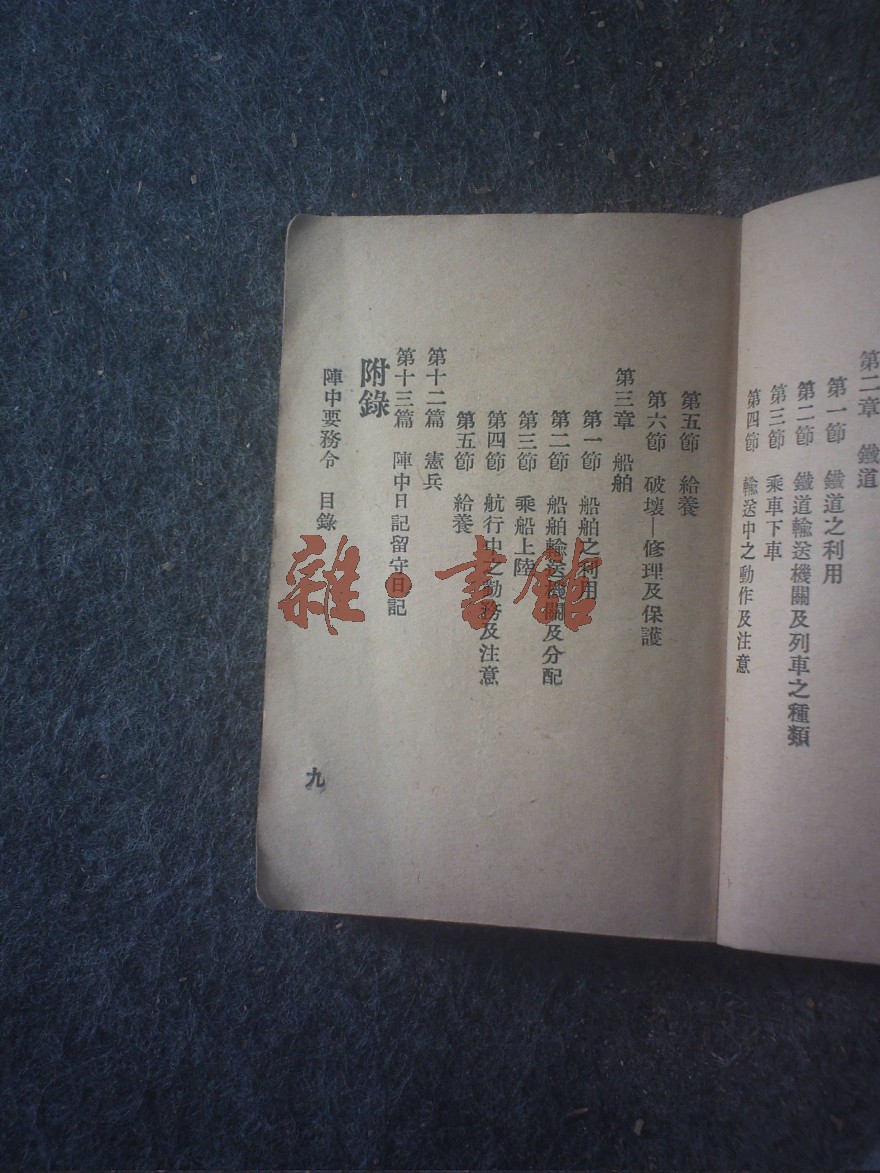 第二章　鐵道
第一節　鐵道之利用
第二節　鐵道輸送機關及列車之種類
第三節　乘車下車
第四節　輸送中之動作及注意
第五節　給養
第六節　破壞—修理及保護
第三章　船舶
第一節　船舶之利用
第二節　船舶輸送機關及分配
第三節　乘船上陸
第四節　航行中之勤務及注意
第五節　給養
第十二篇　憲兵
第十三篇　陣中日記留守日記
附錄
陣中要務令　目錄
九
雜·書館